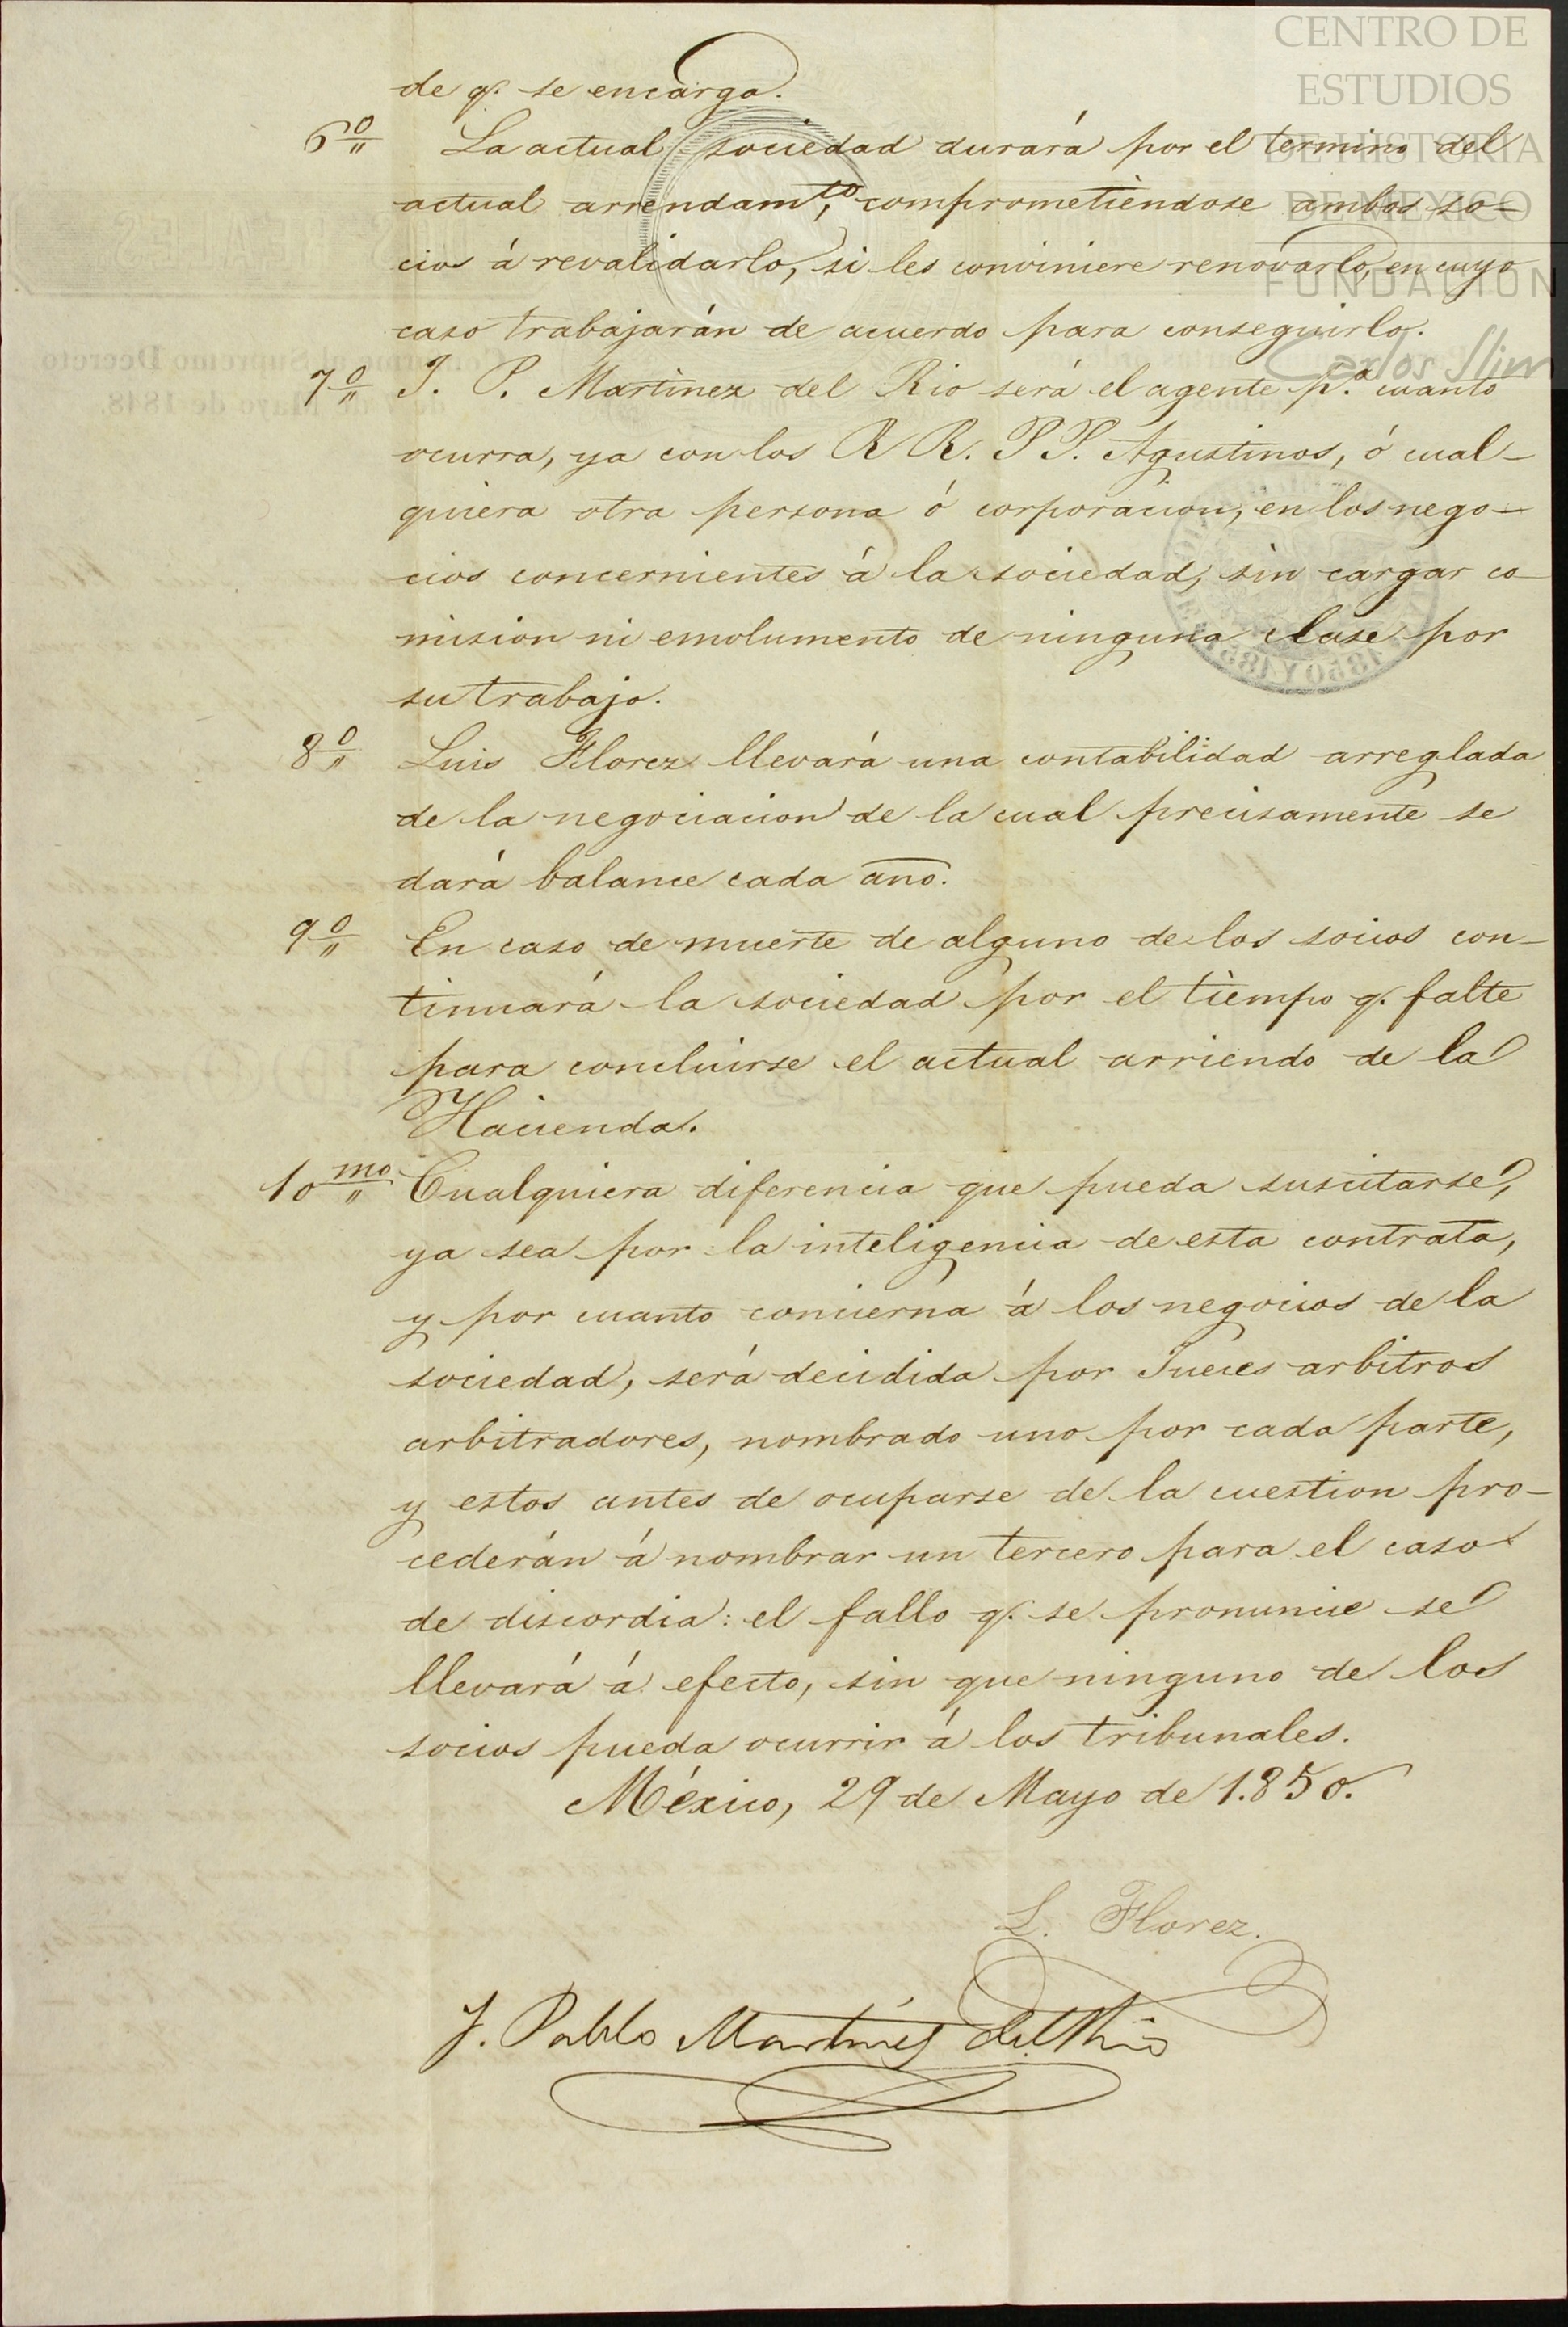 CENTRO DE
ESTUDIOS
DE HISTORIA
DE MEXICO
FUNDACION
Carlos Slim
de q.e se encarga.
6º La actual sociedad durará por el termino del
actual arrendam.to, comprometiéndose ambos so-
cios á revalidarlo, si les conviniere renovarlo, en cuyo
caso trabajarán de acuerdo para conseguirlo.
7º J. P. Martinez del Rio será el agente p.a cuanto
ocurra, ya con los R R. P P. Agustinos, ó cual-
quiera otra persona ó corporacion, en los nego-
cios concernientes á la sociedad, sin cargar co-
mision ni emolumento de ninguna clase por
su trabajo.
8º Luis Florez llevará una contabilidad arreglada
de la negociacion de la cual precisamente se
dará balance cada año.
9º En caso de muerte de alguno de los socios con-
tinuará la sociedad por el tiempo q.e falte
para concluirse el actual arriendo de la
Hacienda.
10mo Cualquiera diferencia que pueda suscitarse,
ya sea por la inteligencia de esta contrata,
y por cuanto concierna á los negocios de la
sociedad, será decidida por Jueces arbitros
arbitradores, nombrado uno por cada parte,
y estos antes de ocuparse de la cuestion pro-
cederán á nombrar un tercero para el caso
de discordia: el fallo q.e se pronuncie se
llevará á efecto, sin que ninguno de los
socios pueda ocurrir á los tribunales.
México, 29 de Mayo de 1.850.
L. Florez.
J. Pablo Martínez del Rio